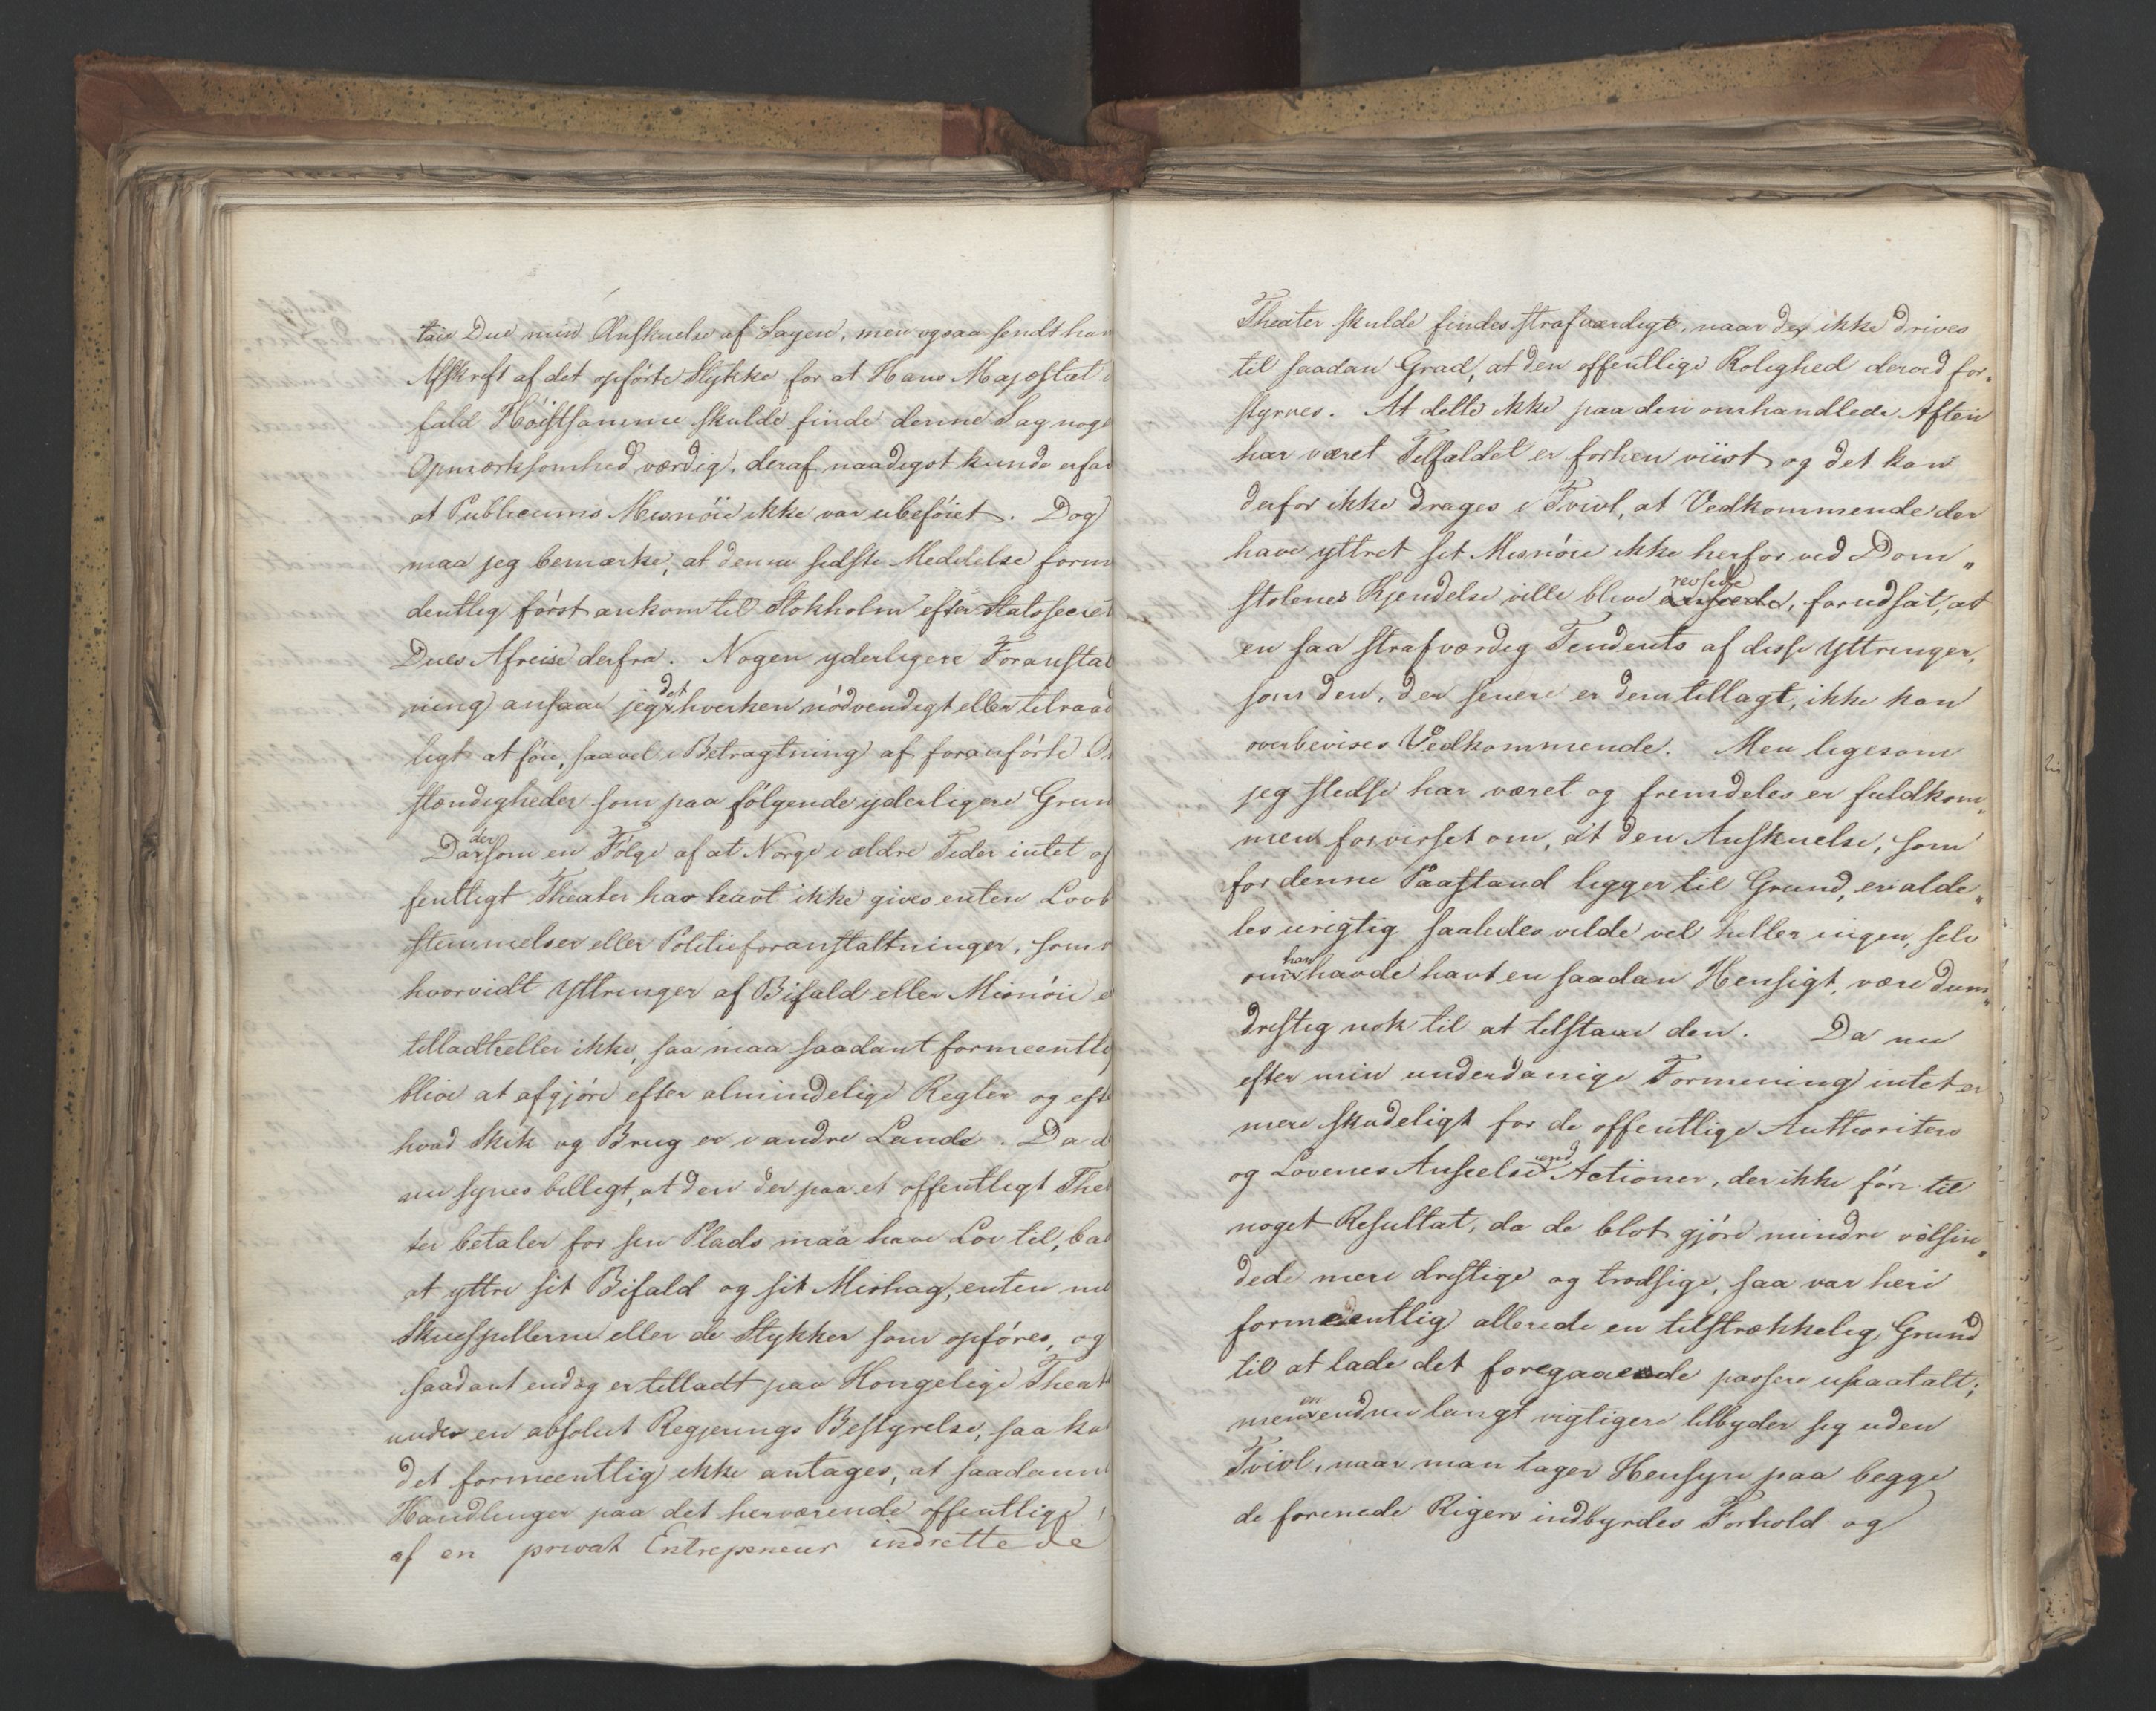 tair Due min Anskuelse af Sagen, men ogsaa sendt ham
Afskrift af det opförte Stykke for at Hans Majestæt i
fald Höistsamme skulde finde denne Sag noge
Opmærksomhed værdig, deraf naadigst kunde erfar
at Publicums Misnöie ikke var ubeföiet. Dog
maa jeg bemærke, at denne sidste Meddelse form
dentlig först ankom til Stokholm efter Statssecret
Dues Afreise derfra. Nogen yderligere Foranstal
ning ansaae jeg det hverken nödvendigt eller tilraad
ligt at föie, saavel i Betragtning af foranförte O
stændigheder som paa fölgende yderligere Grun
Da der som en Fölge af at Norge i ældre Tider intet of
fentligt Theater har havt ikke gives enten Lovb
stemmelser eller Politieforanstaltninger, som
hvorvidt Yttringer af Bifald eller Misnöie e
tilladt eller ikke, saa maa saadant formeentlig
blive at afgjöre efter almindelige Regler og efte
hvad Skik og Brug er i andre Lande. Da d
nu synes billigt, at den der paa et offentligt Thea
ter betaler for sin Plads maa have Lov til, baa
at yttre sit Bifald og sit Mishag, enten med
Skuespillerne eller de Stykker som opföres, og
saadant endog er tilladt paa Kongelige Theat
under en absolut Regjerings Bestyrelse, saa ka
det formeentlig ikke antages, at saadann
Handlinger paa det herværende offentlige
af en privat Entrepeneur indrettede
Theater skulde findes strafværdige, naar de ikke drives
til saadan Grad, at den offentlige Rolighed derved for„
styrres. At dette ikke paa den omhandlede Aften
har været Tilfældet er forhen viist og det kan
derfor ikke drages i Tvivl, at Vedkommende der
have yttret sit Misnöie ikke herfor ved Dom„
stolenes Kjendelse ville blive revsede, forudsat, at
en saa strafværdig Tendents af disse Yttringer,
som den, der senere er dem tillagt, ikke kan
overbevises Vedkommende. Men ligesom
jeg stedse har været og fremdeles er fuldkom„
men forvisset om, at den Anskuelse, som
for denne Paastand ligger til Grund, er alde„
les urigtig saaledes vilde vel heller ingen, selv
om han havde havt en saadan Hensigt, være dum„
dristig nok til at tilstaae den. Da nu
efter min underdanige Formening intet er
mere skadeligt for de offentlige Authoriters
og Lovenes Anseelse end Actioner, der ikke före til
noget Resultat, da de blot gjöre mindre velsin„
dede mere dristige og trodsige, saa var heri
formeentlig allerede en tilstrækkelig Grund
til at lade det foregaaende passere upaatalt;
men en endnu langt vigtigere tilbyder sig uden
Tvivl, naar man tager Hensyn paa begge
de forenede Rigers indbyrdes Forhold og